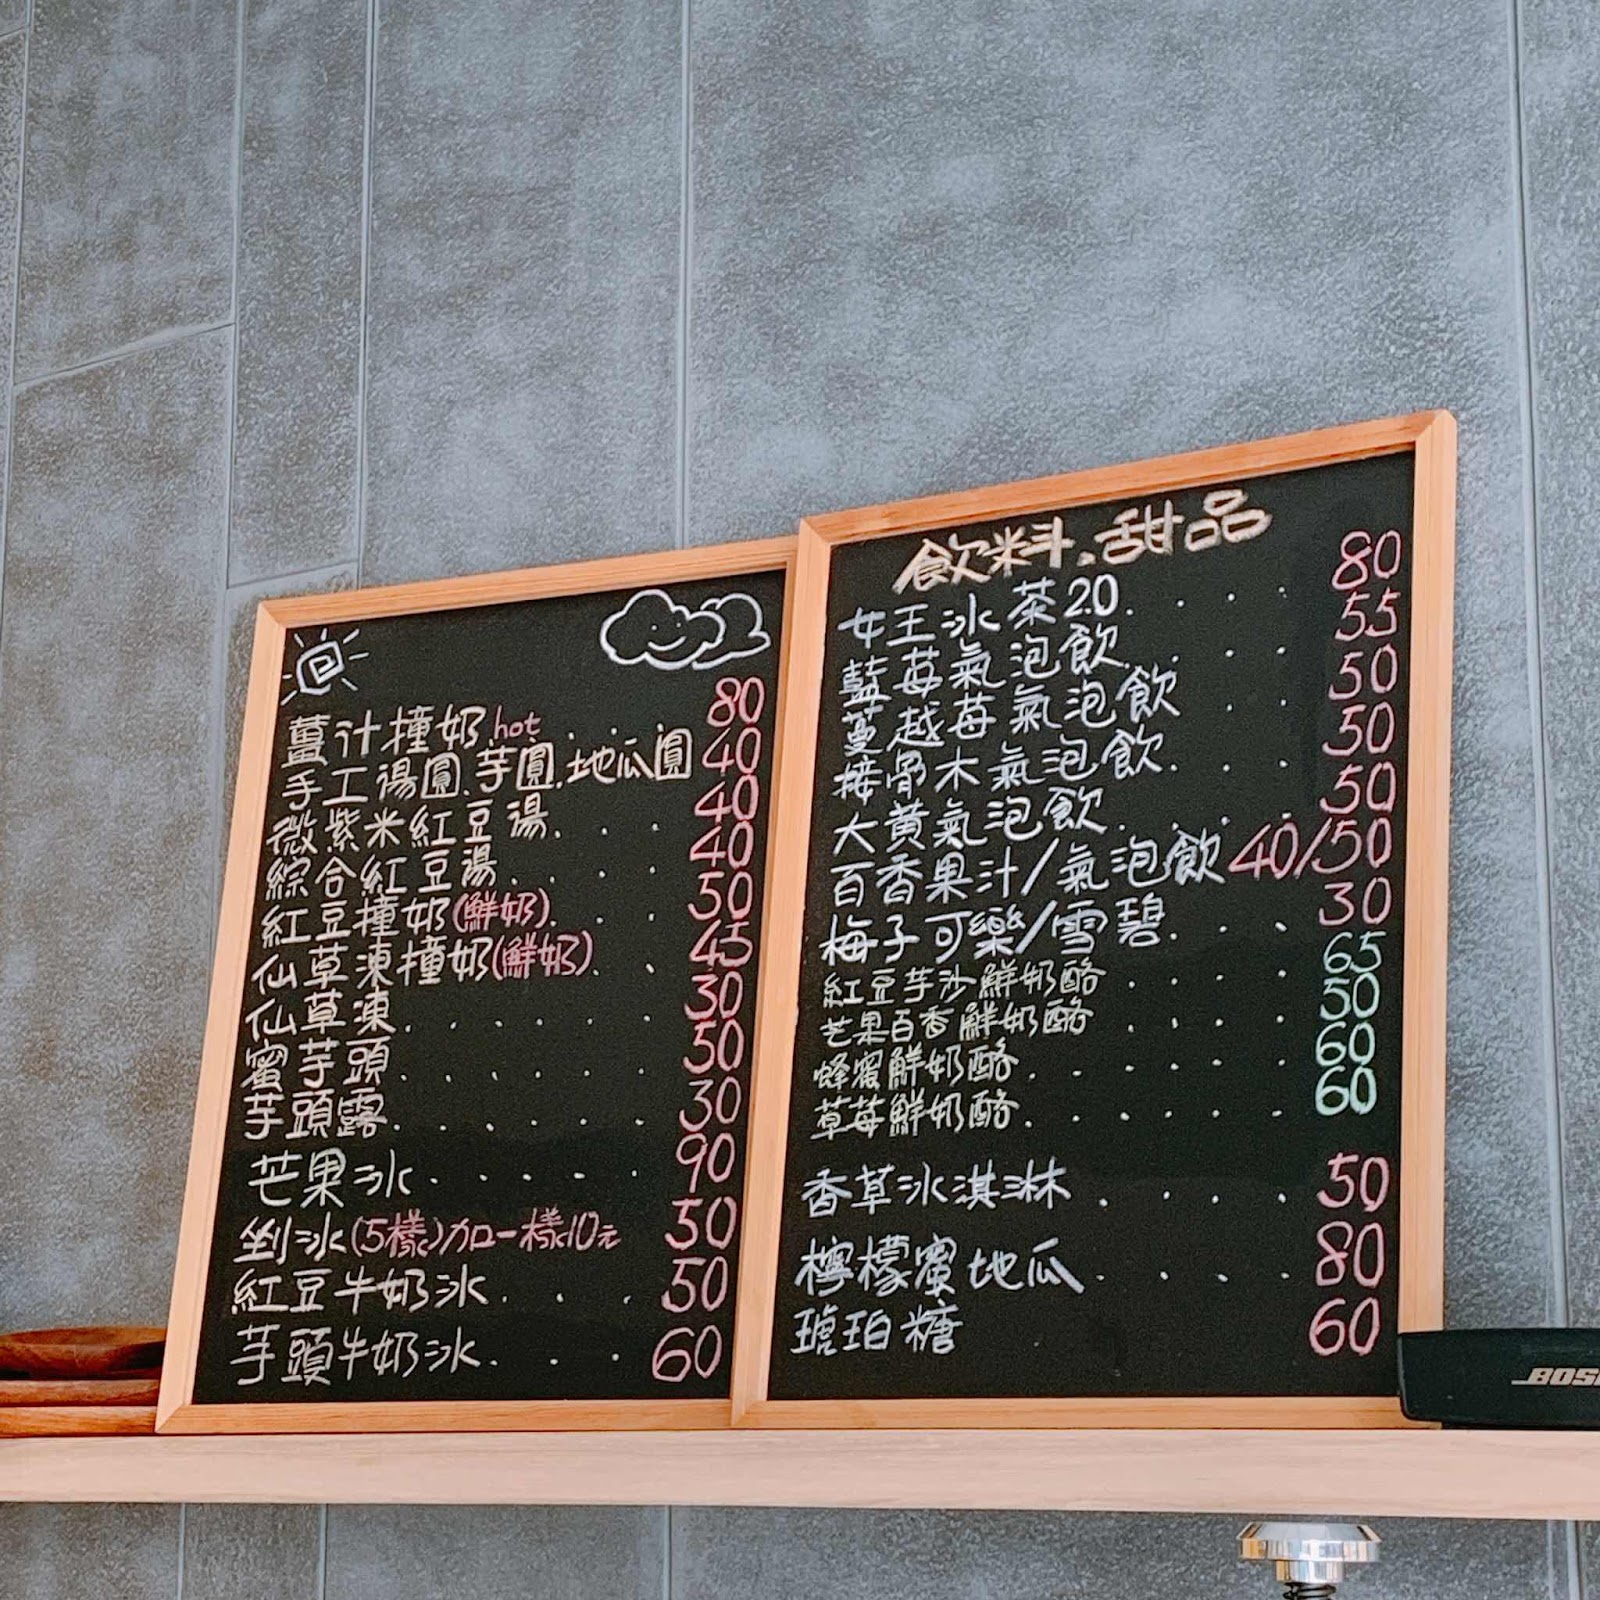 薑汁撞奶 hot . . . . 80
手工湯圓.芋圓.地瓜圓 40
微紫米紅豆湯. . . . 40
綜合紅豆湯. . . . 40
紅豆撞奶(鮮奶). . . . 50
仙草凍撞奶(鮮奶). . . 45
仙草凍. . . . . . 30
蜜芋頭. . . . . . 50
芋頭露. . . . . . 30
芒果冰. . . . . . 90
剉冰(5樣)加一樣10元 50
紅豆牛奶冰. . . . 50
芋頭牛奶冰. . . . 60
飲料.甜品
女王冰茶2.0. . . . . 80
藍莓氣泡飲. . . . . 55
蔓越莓氣泡飲. . . 50
接骨木氣泡飲. . . . 50
大黄氣泡飲. . . . . 50
百香果汁/氣泡飲 40/50
梅子可樂/雪碧. . . . 30
紅豆芋沙鮮奶酪 . . . . 65
芒果百香鮮奶酪 . . . . 50
蜂蜜鮮奶酪. . . . . . 60
草莓鮮奶酪. . . . . . 60
香草冰淇淋 . . . . . 50
檸檬蜜地瓜. . . . . 80
琥珀糖 60
BOS